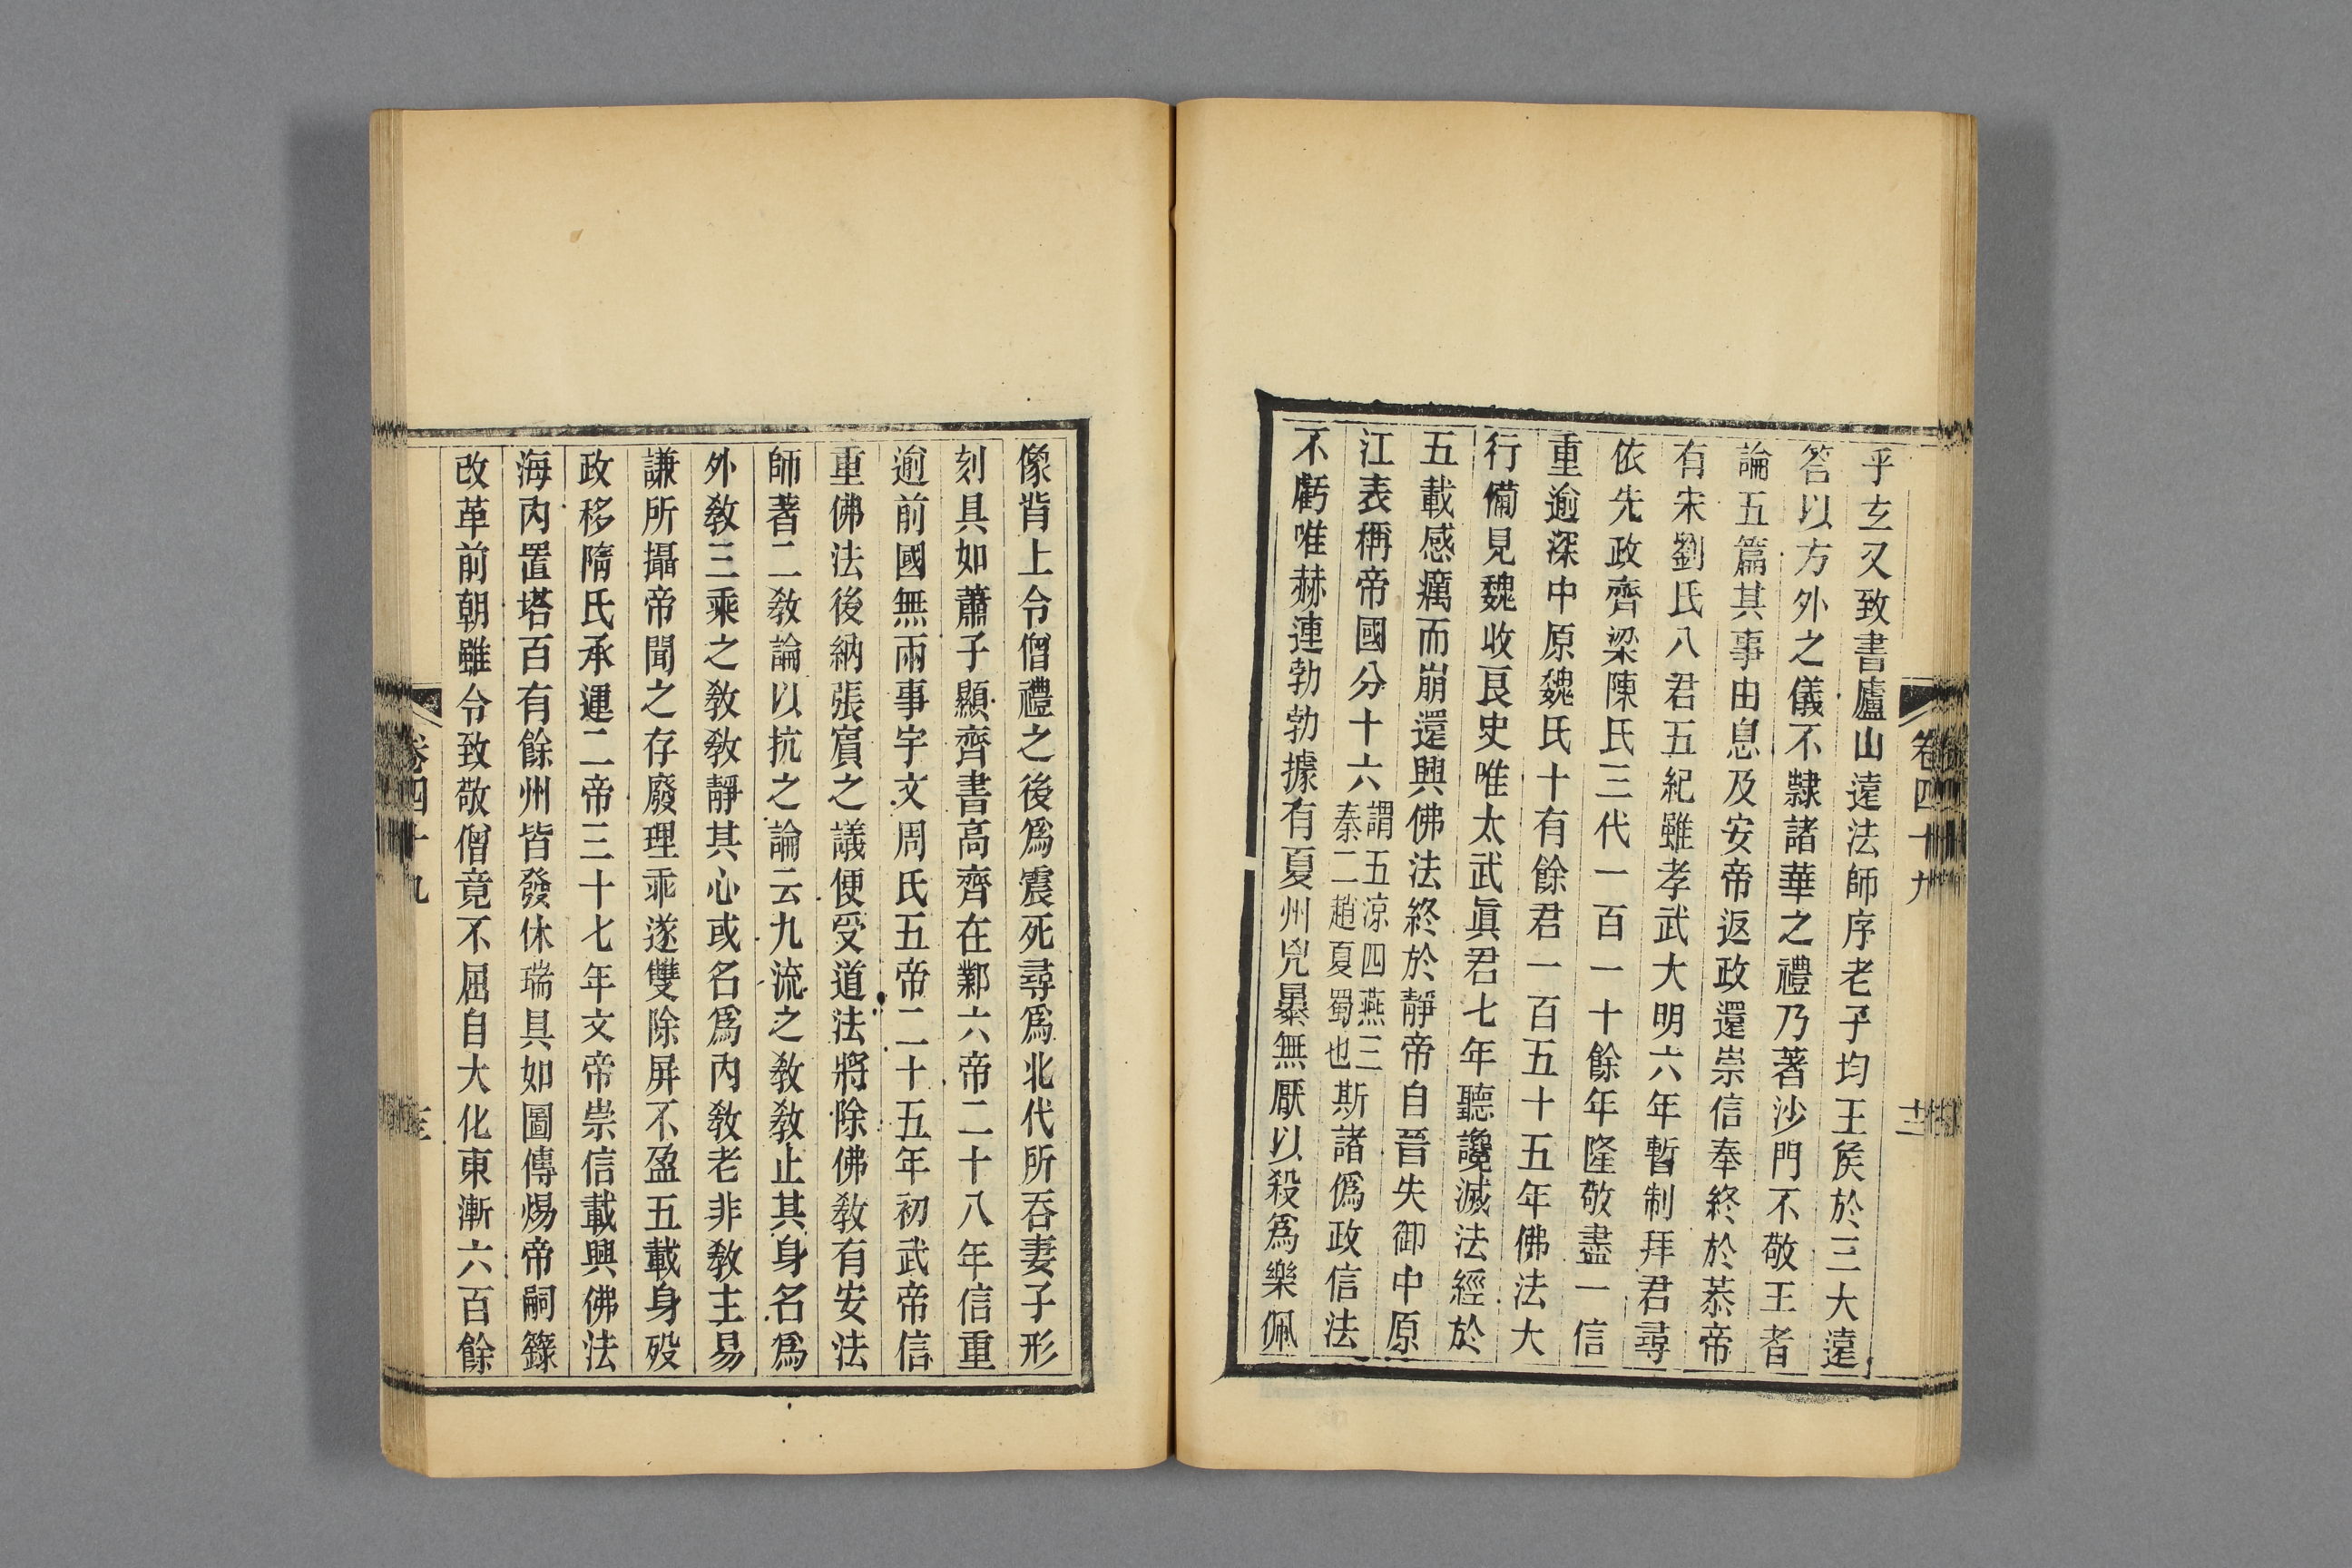 乎玄又致書廬山遠法師序老子均王矦於三大遠
答以方外之儀不隸諸華之禮乃著沙門不敬王者
論五篇其事由息及安帝返政還崇信奉終於恭帝
有宋劉氏八君五紀雖孝武大明六年暫制拜君尋
依先政齊梁陳氏三代一百一十餘年隆敬盡一信
重逾深中原魏氏十有餘君一百五十五年佛法大
行備見魏收良史唯太武眞君七年聽讒滅法經於
五載感癘而崩還興佛法終於靜帝自晉失御中原
江表稱帝國分十六謂五涼四燕三秦二趙夏蜀也斯諸僞政信法
不虧唯赫連勃勃據有夏州兇暴無厭以殺爲樂佩
卷四十九
十二
像背上令僧禮之後爲震死尋爲北代所吞妻子形
刻具如蕭子顯齊書高齊在鄴六帝二十八年信重
逾前國無兩事宇文周氏五帝二十五年初武帝信
重佛法後納張賓之議便受道法將除佛敎有安法
師著二敎論以抗之論云九流之敎敎止其身名爲
外敎三乘之敎敎靜其心或名爲內敎老非敎主易
謙所攝帝聞之存廢理乖遂雙除屏不盈五載身歿
政移隋氏承運二帝三十七年文帝崇信載興佛法
海內置塔百有餘州皆發休瑞具如圖傳煬帝嗣籙
改革前朝雖令致敬僧竟不屈自大化東漸六百餘
卷四十九